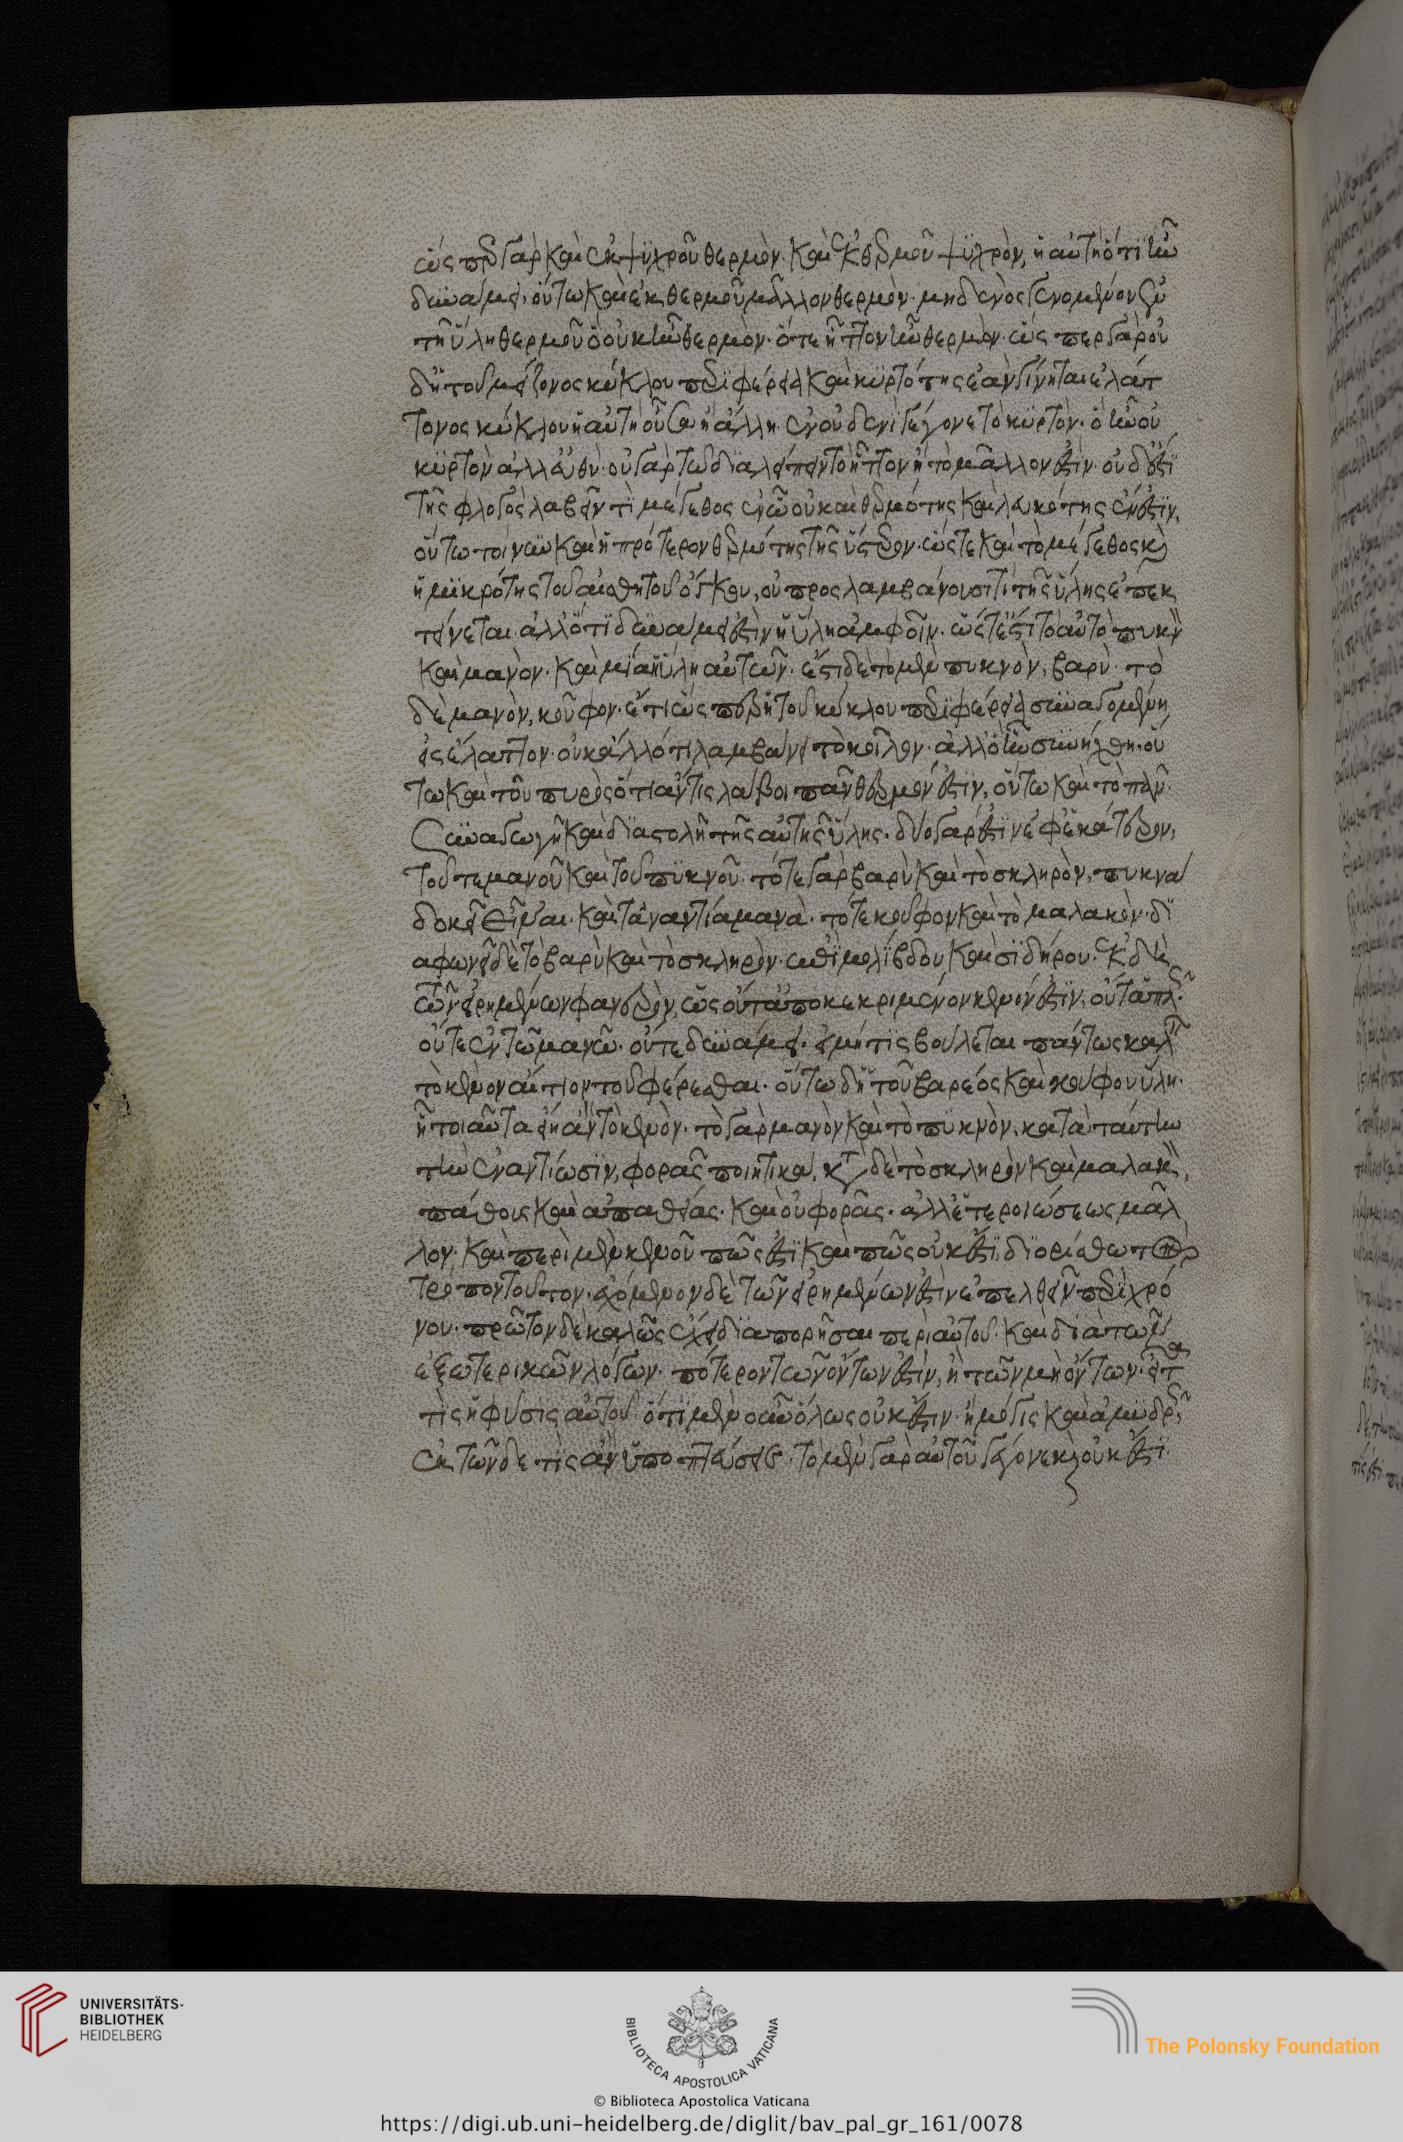 ὥσπερ γὰρ καὶ ἐκ ψυχροῦ θερμὸν καὶ ἐκ θερμοῦ ψυχρὸν, ἡ αὐτὴ ὅτι ἦν
δυνάμει· οὕτω καὶ ἐκ θερμοῦ μᾶλλον θερμὸν· μηδενὸς γενομένου ἐν
τῆ ὕλη θερμοῦ ὃ οὐκ ἦν θερμὸν· ὅτε ἧττον ἦν θερμὸν· ὥσπερ γὰρ οὐ
δ' ἡ τοῦ μείζονος κύκλου περιφέρεια καὶ κυρτότης ἐὰν γίνηται ἐλάτ
τονος κύκλου ἡ αὐτὴ οὖσα ἢ ἄλλη· ἐν οὐδενὶ γέγονε τὸ κυρτὸν· ὃ ἦν οὐ
κυρτὸν ἀλλ' εὐθὺ· οὐ γὰρ τῶ διαλείπειν τὸ ἧττον ἢ τὸ μᾶλλον ἐστὶν· οὐδ' ἐστὶ
τῆς φλογὸς λαβεῖν τι μέγεθος ἐν ὧ οὐ καὶ θερμότης καὶ λευκότης ἔνεστιν,
οὕτω τοίνυν καὶ ἡ πρότερον θερμότης τῆς ὕστερον· ὥστε καὶ τὸ μέγεθος καὶ
ἡ μικρότης τοῦ αἰσθητοῦ ὄγκου, οὐ προσλαμβανούσης τι τῆς ὕλης ἐπεκ
τείνεται· ἀλλ' ὅτι δυνάμει ἐστὶν ἡ ὕλη ἀμφοῖν· ὥστ' ἐστὶ τὸ αὐτὸ πυκνὸν
καὶ μανὸν· καὶ μία ἡ ὕλη αὐτῶν· ἔστι δὲ τὸ μὲν πυκνὸν, βαρὺ· τὸ
δὲ μανὸν, κοῦφον· ἔτι ὥσπερ ἡ τοῦ κύκλου περιφέρεια συναγομένη
εἰς ἔλαττον· οὐκ ἄλλό τι λαμβάνει τὸ κοῖλον· ἀλλ' ὃ ἦν συνήχθη· οὕ
τω καὶ τοῦ πυρὸς ὅτι ἄν τις λάβοι πᾶν θερμόν ἐστιν, οὕτω καὶ τὸ πᾶν
συναγωγῆ καὶ διαστολῆ τῆς αὐτῆς ὕλης· δύο γάρ ἐστιν ἐφ' ἑκάτερον,
τοῦ τε μανοῦ καὶ τοῦ πυκνοῦ· τό τε γὰρ βαρὺ καὶ τὸ σκληρὸν, πυκνὰ
δοκεῖ εἶναι· καὶ τἀναντία μανὰ· τό τε κοῦφον καὶ τὸ μαλακὸν· δι
αφωνεῖ δὲ τὸ βαρὺ καὶ τὸ σκληρὸν· ἐπὶ μολίβδου καὶ σιδήρου· ἐκ δὲ
τῶν εἰρημένων φανερὸν, ὡς οὔτ' ἀποκεκριμένον κενόν ἐστιν, οὔθ' ἁπλῶς
οὔτε ἐν τῶ μανῶ· οὔτε δυνάμει· εἰ μή τις βούλεται πάντως καλεῖν
τὸ κενὸν αἴτιον τοῦ φέρεσθαι· οὕτω δ' ἡ τοῦ βαρέος καὶ κούφου ὕλη·
ἧ τοιαῦτα εἴη ἂν τὸ κενὸν· τὸ γὰρ μανὸν καὶ τὸ πυκνὸν, κατὰ ταύτην
τὴν ἐναντίωσιν, φορᾶς ποιητικὰ, κατὰ δὲ τὸ σκληρὸν καὶ μαλακὸν,
πάθους καὶ ἀπαθείας· καὶ οὐ φορᾶς· ἀλλ' ἑτεροιώσεως μᾶλ
λον· καὶ περὶ μὲν κενοῦ πῶς ἐστὶ καὶ πῶς οὐκ ἔστι, διορίσθω τὸν
τρόπον τοῦτον· ἐχόμενον δὲ τῶν εἰρημένων ἐστὶν ἐπελθεῖν περὶ χρό
νου· πρῶτον δὲ καλῶς ἔχει διαπορῆσαι περὶ αὐτοῦ· καὶ διὰ τῶν
ἐξωτερικῶν λόγων· πότερον τῶν ὄντων ἐστὶν, ἢ τῶν μὴ ὄντων· εἶτα
τίς ἡ φύσις αὐτοῦ· ὅτι μὲν οὖν ὅλως οὐκ ἔστιν· ἢ μόλις καὶ ἀμυδρῶς
ἐκ τῶνδε τις ἂν ὑποπτεύσειε· τὸ μὲν γὰρ αὐτοῦ γέγονε καὶ οὐκ ἔστι
UNIVERSITÄTS-
BIBLIOTHEK
HEIDELBERG
BIBLIOTECA APOSTOLICA VATICANA
The Polonsky Foundation
© Biblioteca Apostolica Vaticana
https://digi.ub.uni-heidelberg.de/diglit/bav_pal_gr_161/0078